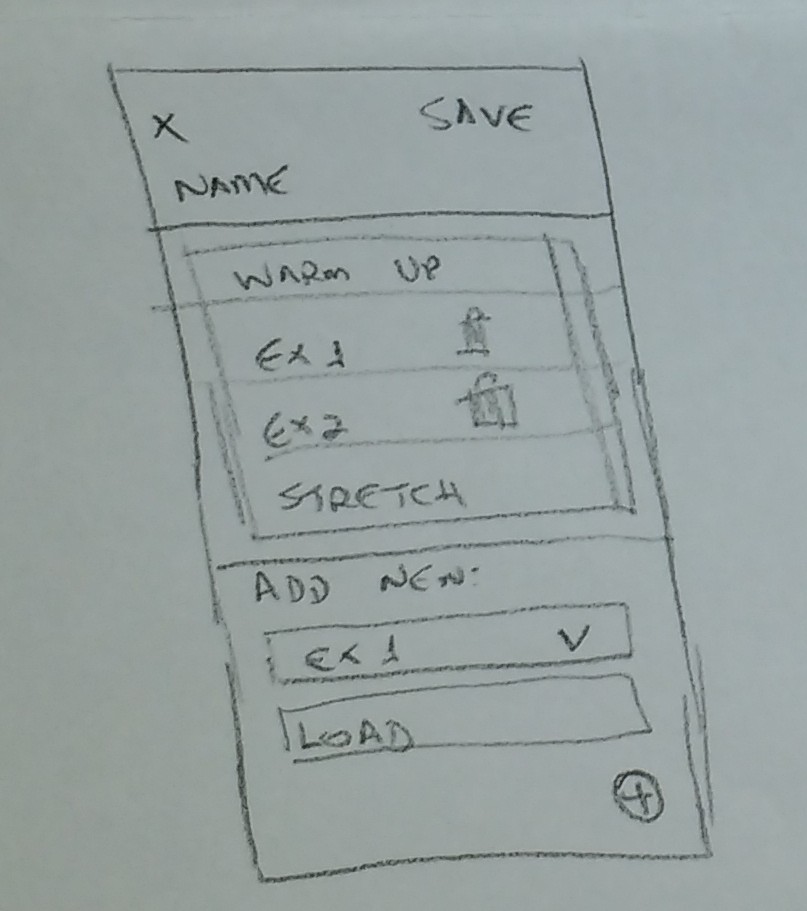 X SAVE
NAME
WARM UP
EX 1
EX 2
STRETCH
ADD NEW:
EX 1 V
LOAD
+